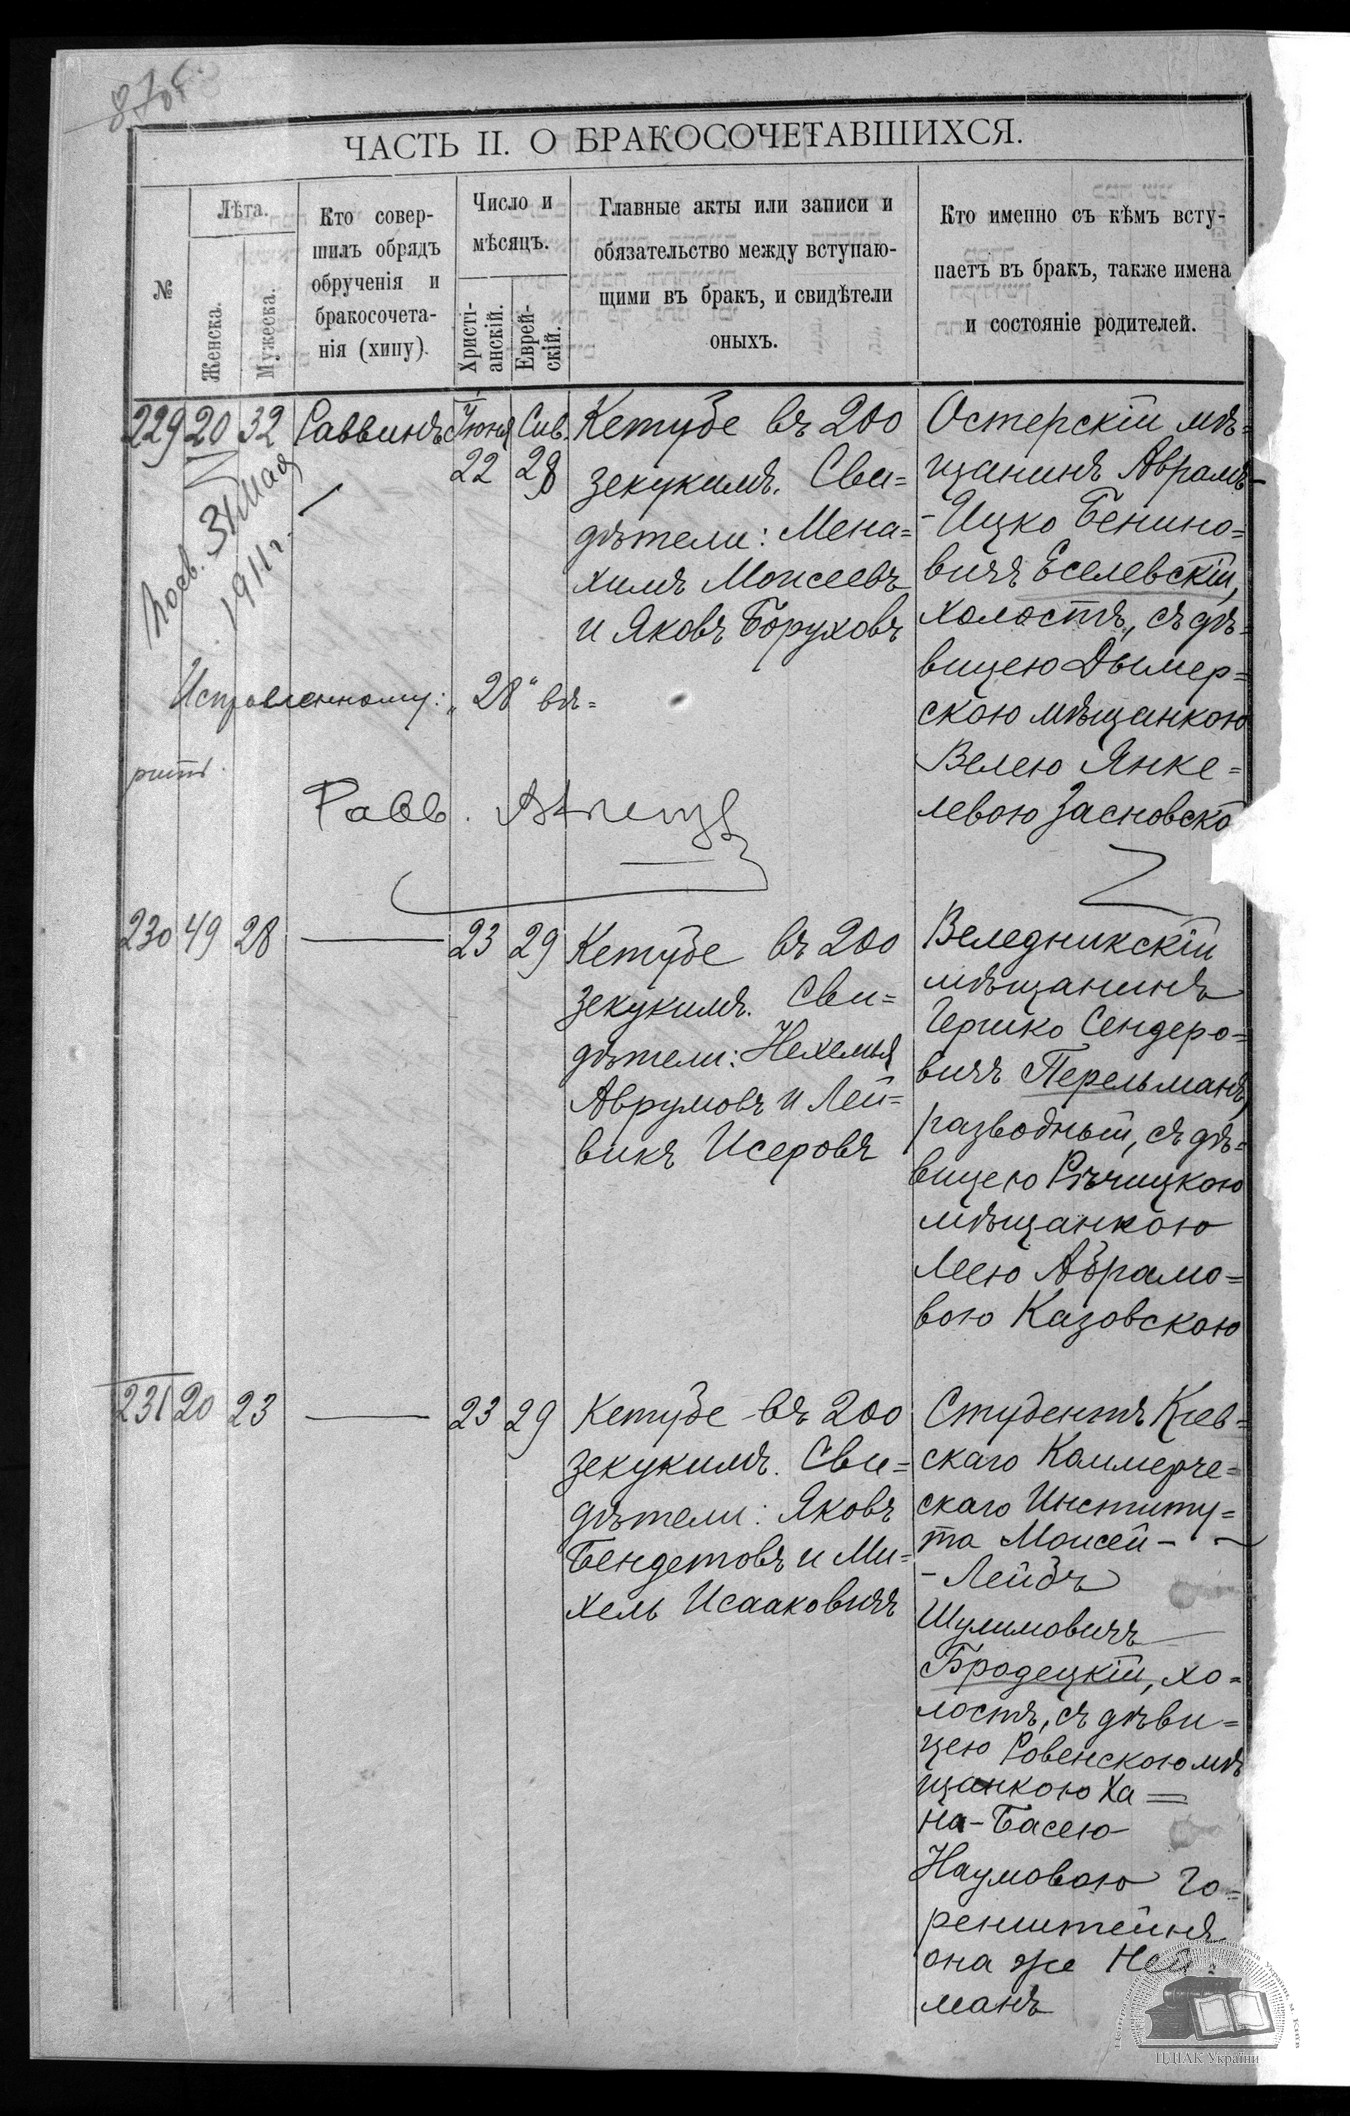 ЧАСТЬ II. О БРАКОСОЧЕТАВШИХСЯ.
№
Лѣта.
Женска.
Мужеска.
Кто совер-
шилъ обрядъ
обрученія и
бракосочета-
нія (хипу).
Число и
мѣсяцъ.
Христі-
анскій.
Еврей-
скій.
Главные акты или записи и
обязательство между вступаю-
щими въ бракъ, и свидѣтели
оныхъ.
Кто именно съ кѣмъ всту-
паетъ въ бракъ, также имена
и состояніе родителей.
229
20
32
Раввинъ
Іюня
22
Сив.
28
Кетубе въ 200
зекукимъ. Сви=
дѣтели: Мена=
химъ Моисеевъ
и Яковъ Боруховъ
Остерскій мѣ=
щанинъ Аврамъ-
-Ицко Бенино=
вичъ Еселевскій,
холостъ, съ дѣ=
вицею Дымер=
скою мѣщанкою
Велею Янке=
левою Засновско
31 Мая
1911 г.
Исправленному: „28“ вѣ=
рить.
Равв.
230
49
28
23
29
Кетубе въ 200
зекукимъ. Сви=
дѣтели: Нехемья
Аврумовъ и Лей=
викъ Исеровъ
Веледникскій
мѣщанинъ
Гершко Сендеро=
вичъ Перельманъ,
разводный, съ дѣ=
вицею Рѣчицкою
мѣщанкою
Леею Абрамо=
вою Казовскою
231
20
23
23
29
Кетубе въ 200
зекукимъ. Сви=
дѣтели: Яковъ
Бендетовъ и Ми=
хель Исааковичъ
Студентъ Кіев=
скаго Коммерче=
скаго Институ=
та Моисей-
-Лейбъ
Шулимовичъ
Бродецкій, хо=
лостъ, съ дѣви=
цею Ровенскою мѣ
щанкою Ха=
на-Басею
Наумовою Го=
ренштейнъ
она же Ней=
манъ
ЦДІАК України